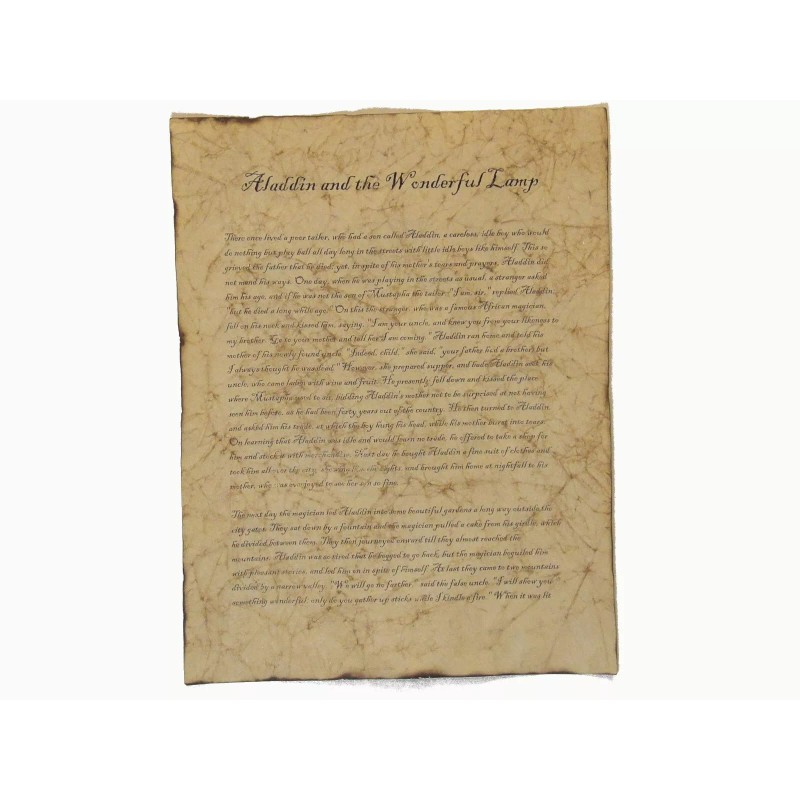 Aladdin and the Wonderful Lamp
There once lived a poor tailor, who had a son called Aladdin, a careless, idle boy who would
do nothing but play ball all day long in the streets with little idle boys like himself. This so
grieved the father that he died; yet, in spite of his mother's tears and prayers, Aladdin did
not mend his ways. One day, when he was playing in the streets as usual, a stranger asked
him his age, and if he was not the son of Mustapha the tailor. "I am, sir," replied Aladdin;
"but he died a long while ago." On this the stranger, who was a famous African magician,
fell on his neck and kissed him, saying: "I am your uncle, and knew you from your likeness to
my brother. Go to your mother and tell her I am coming." Aladdin ran home and told his
mother of his newly found uncle. "Indeed, child," she said, "your father had a brother, but
I always thought he was dead." However, she prepared supper, and bade Aladdin seek his
uncle, who came laden with wine and fruit. He presently fell down and kissed the place
where Mustapha used to sit, bidding Aladdin's mother not to be surprised at not having
seen him before, as he had been forty years out of the country. He then turned to Aladdin,
and asked him his trade, at which the boy hung his head, while his mother burst into tears.
On learning that Aladdin was idle and would learn no trade, he offered to take a shop for
him and stock it with merchandise. Next day he bought Aladdin a fine suit of clothes and
took him all over the city, showing him the sights, and brought him home at nightfall to his
mother, who was overjoyed to see her son so fine.
The next day the magician led Aladdin into some beautiful gardens a long way outside the
city gates. They sat down by a fountain and the magician pulled a cake from his girdle, which
he divided between them. They then journeyed onward till they almost reached the
mountains. Aladdin was so tired that he begged to go back, but the magician beguiled him
with pleasant stories, and led him on in spite of himself. At last they came to two mountains
divided by a narrow valley. "We will go no farther," said the false uncle. "I will show you
something wonderful; only do you gather up sticks while I kindle a fire." When it was lit